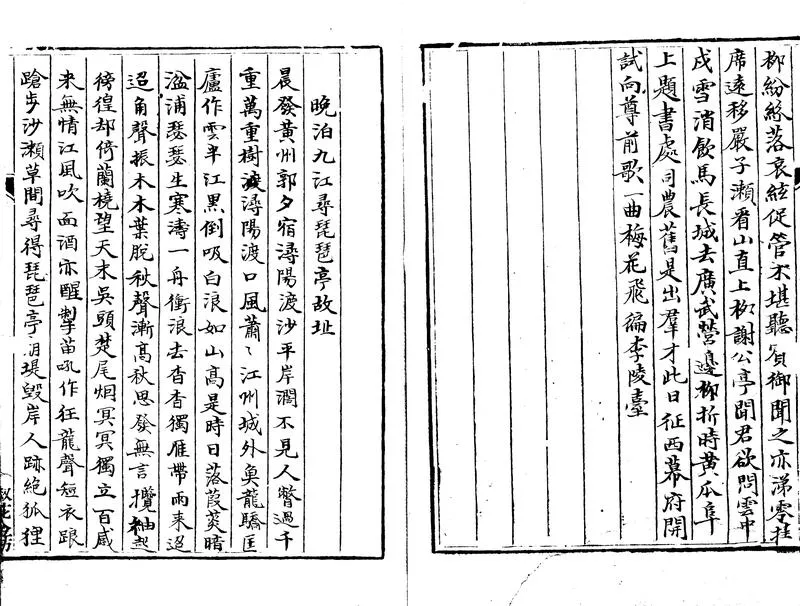 柳紛絲落哀絃促管不堪聽賓御聞之亦涕零挂
席遠移嚴子瀬看山直上柳謝公亭聞君欲問雲中
戍雪消飲馬長城去廣武營邊柳折時黄瓜阜
上題書處司農舊是出羣才此日征西幕府開
試向尊前歌一曲梅花飛徧李陵臺
晚泊九江尋琵琶亭故址
晨發黄州郭夕宿潯陽渡沙平岸濶不見人瞥過千
重萬重樹潯陽渡口風蕭〻江州城外魚龍驕匡
廬作雲半江黑倒吸白浪如山高是時日落葭菼暗
湓浦瑟瑟生寒濤一舟衝浪去杳杳獨雁帶雨來迢
迢角聲振木木葉脫秋聲漸高秋思發無言攬袖起
徬徨却倚蘭橈望天末吳頭楚尾烟冥冥獨立百感
来無情江風吹面酒亦醒掣笛吼作狂龍聲短衣踉
蹌步沙瀬草間尋得琵琶亭堤毀岸人跡絶狐狸